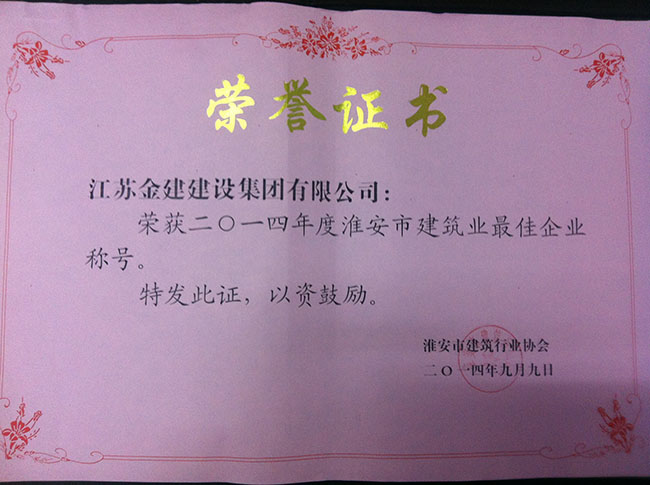 荣誉证书
江苏金建建设集团有限公司：
荣获二〇一四年度淮安市建筑业最佳企业
称号。
特发此证，以资鼓励。
淮安市建筑行业协会
二〇一四年九月九日